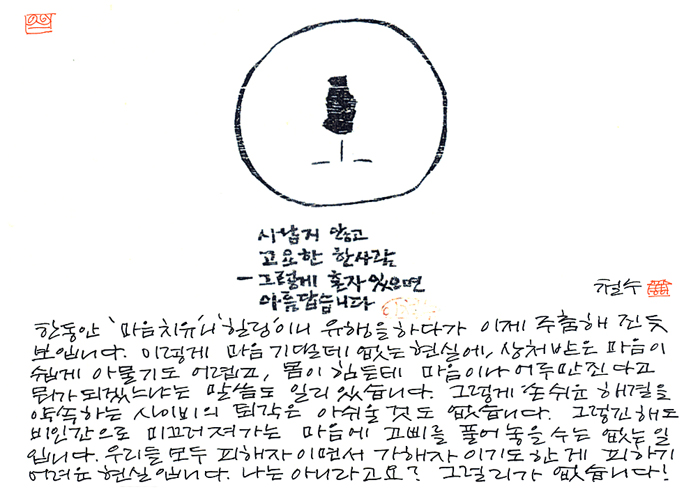 시끄럽지 않고
고요한 한사람
— 그렇게 혼자 있으면
아름답습니다
철수
한동안 '마음치유'나 '힐링'이니 유행을 하다가 이제 주춤해 진 듯
보입니다. 이렇게 마음 기댈데 없는 현실에, 상처받은 마음이
쉽게 아물기도 어렵고, 몸이 힘든데 마음이나 어루만진다고
뭐가 되겠느냐는 말씀도 일리 있습니다. 그렇게 손쉬운 해결을
약속하는 사이비의 퇴각은 아쉬울 것도 없습니다. 그렇긴 해도
비인간으로 미끄러져가는 마음에 고삐를 풀어 놓을 수는 없는 일
입니다. 우리들 모두 피해자 이면서 가해자 이기도 한 게 피하기
어려운 현실입니다. 나는 아니라고요? 그럴리가 없습니다!